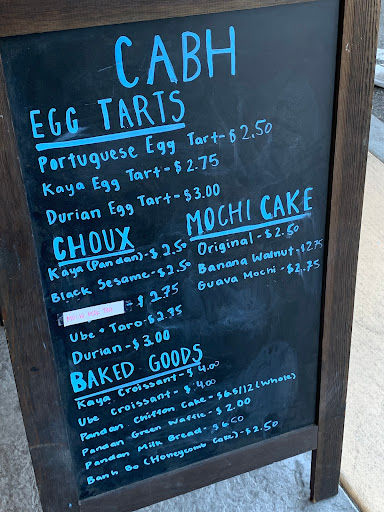 CABH
EGG TARTS
Portuguese Egg Tart - $2.50
Kaya Egg Tart - $2.75
Durian Egg Tart - $3.00
CHOUX
Kaya (Pandan) - $2.50
Black Sesame - $2.50
- $2.75
Ube + Taro - $2.75
Durian - $3.00
MOCHI CAKE
Original - $2.50
Banana Walnut - $2.75
Guava Mochi - $2.75
BAKED GOODS
Kaya Croissant - $4.00
Ube Croissant - $4.00
Pandan Chiffon Cake - $6.5/12 (Whole)
Pandan Green Waffle - $2.00
Pandan Milk Bread - $6.50
Banh Bo (Honeycomb Cake) - $2.50